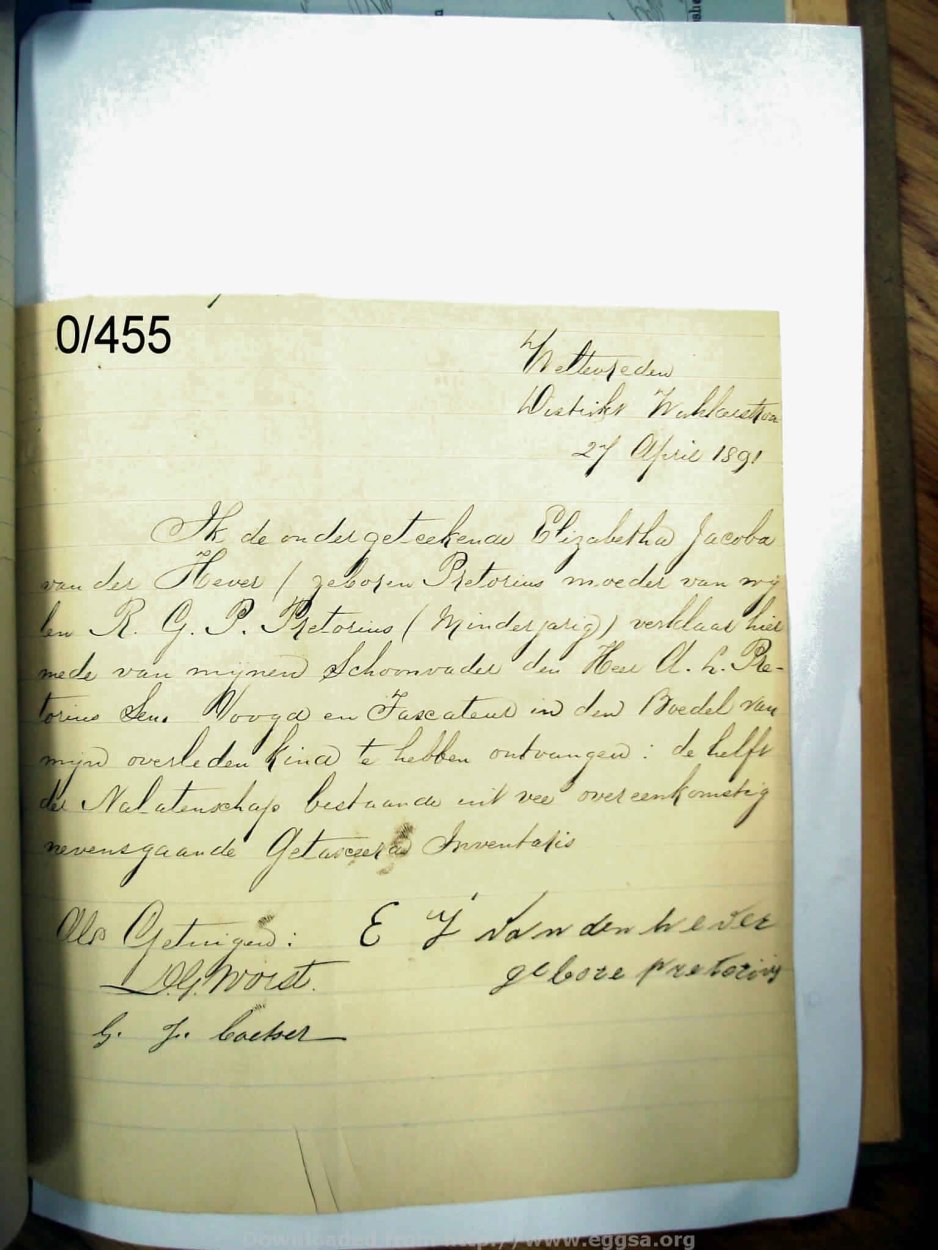 0/455
Weltevreden
Distrikt Wakkerstroom
27 April 1891
Ik de ondergeteekende Elizabetha Jacoba
van der Hever / geboren Pretorius moeder van wij
len R. G. P. Pretorius (Minderjarig) verklaar hier
mede van mijnen Schoonvader den Heer A. L. Pre-
torius Sen. Voogd en Taxateur in den Boedel van
mijn overleden kind te hebben ontvangen: de helft
der Nalatenschap bestaande uit vee overeenkomstig
nevensgaande Getaxeerde Inventaris
Als Getuigen: E J van den hever
D.G. Vorst. gebore pretorius
G. J. Coetser
Downloaded from http://www.eggsa.org